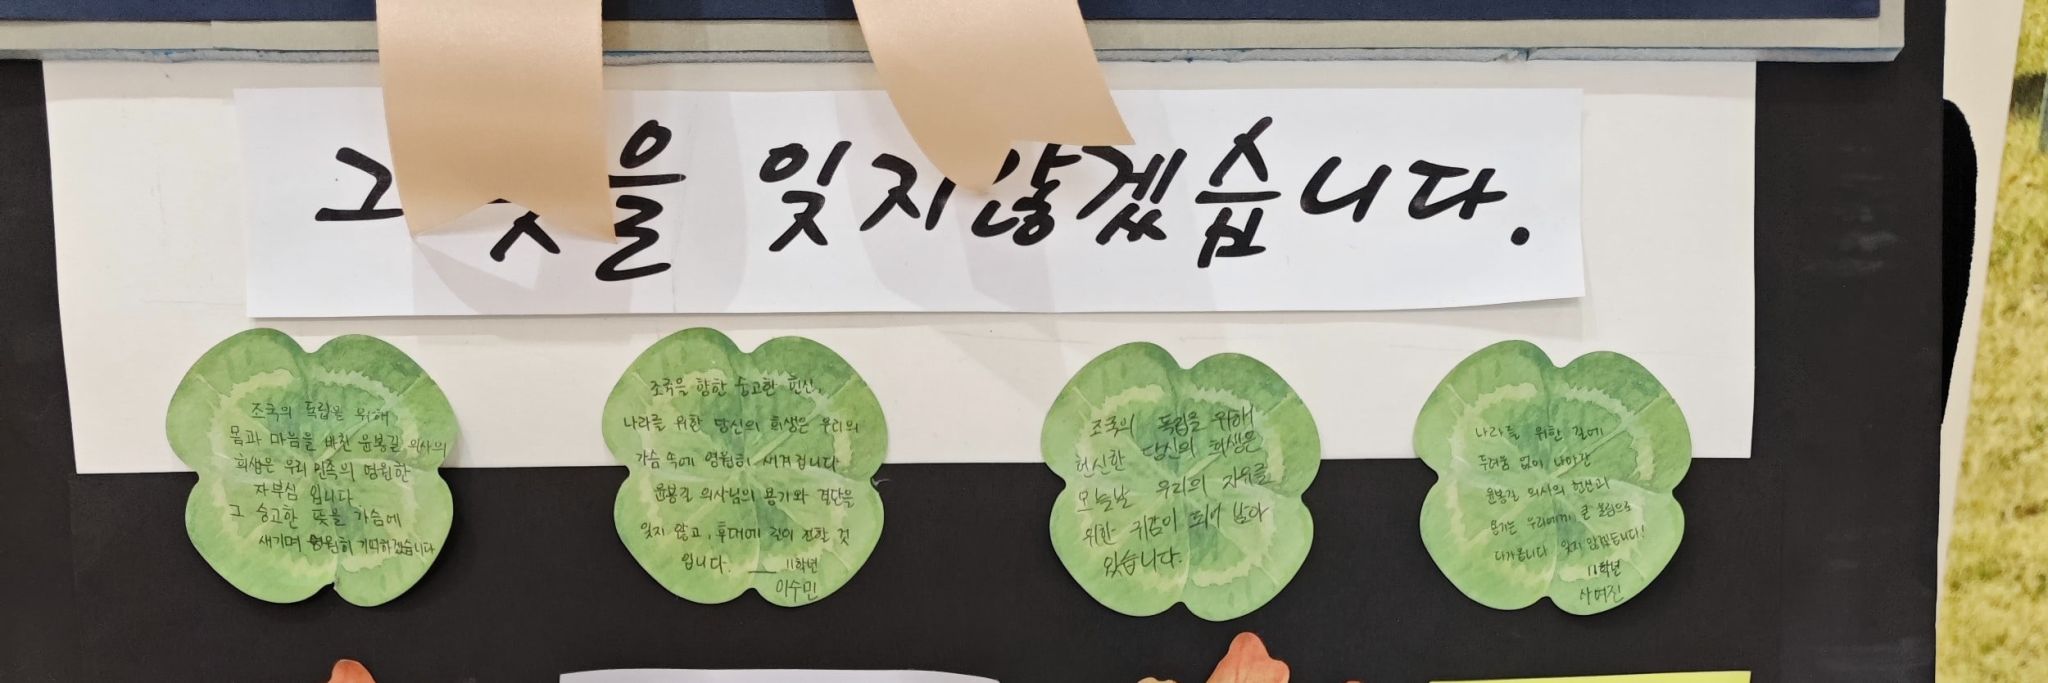 그 뜻을 잊지않겠습니다.
조국의 독립을 위해
몸과 마음을 바친 윤봉길 의사의
희생은 우리 민족의 영원한
자부심 입니다.
그 숭고한 뜻을 가슴에
새기며 영원히 기억하겠습니다
조국을 향한 숭고한 헌신.
나라를 위한 당신의 희생은 우리의
가슴 속에 영원히 새겨집니다
윤봉길 의사님의 용기와 결단을
잊지 않고, 후대에 길이 전할 것
입니다. __ 11학년
이수민
조국의 독립을 위해
헌신한 당신의 희생은
오늘날 우리의 자유를
위한 귀감이 되어 남아
있습니다.
나라를 위한 길에
두려움 없이 나아간
윤봉길 의사의 헌신과
용기는 우리에게 큰 울림으로
다가옵니다 잊지 않겠습니다!
11학년
사여진